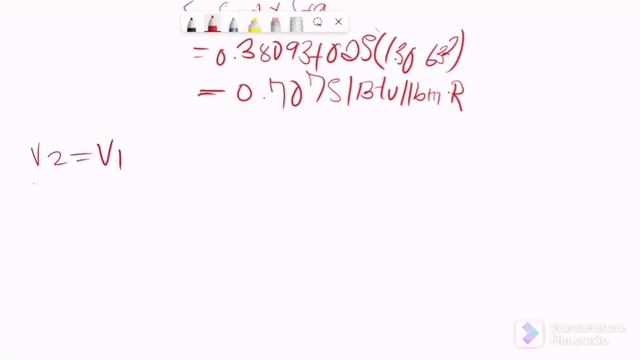 = 0.38093+0.25(1.3063²)
= 0.7075 Btu/lbm·R
V2 = V1
Wondershare
FilmoraGo